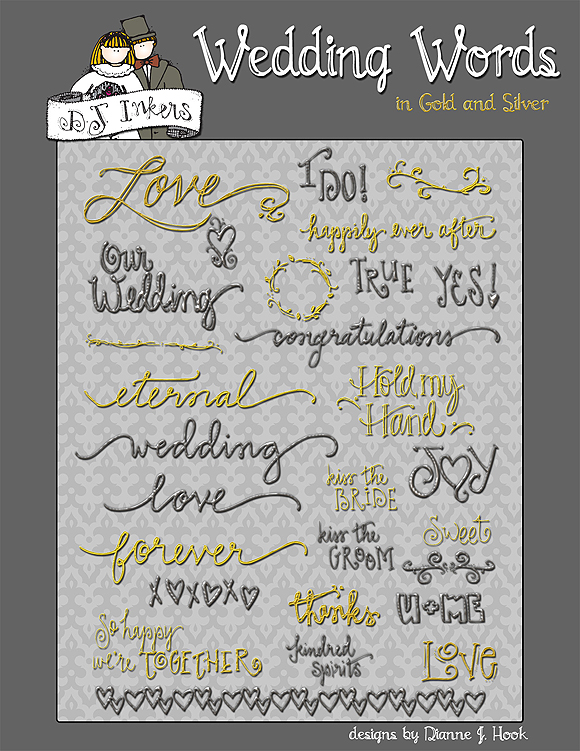 Wedding Words
in Gold and Silver
DJ Inkers
Love
I Do!
happily ever after
Our
Wedding
TRUE
YES!
congratulations
eternal
Hold my
Hand
wedding
JOY
kiss the
BRIDE
love
kiss the
GROOM
Sweet
forever
XOXOXO
thanks
U+ME
So happy
we're TOGETHER
kindred
spirits
Love
designs by Dianne J. Hook